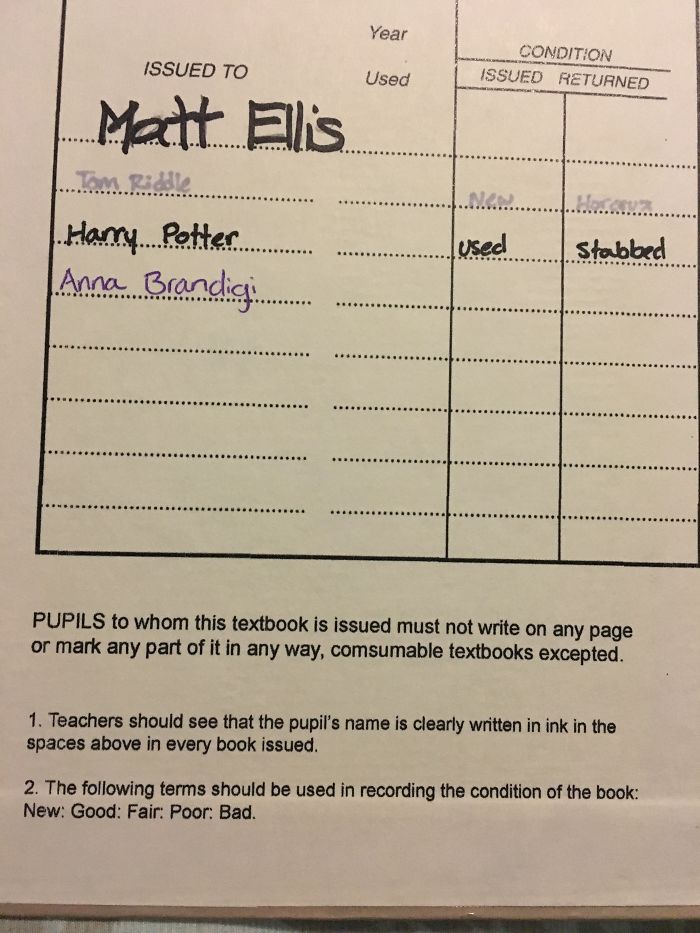 Year
CONDITION
ISSUED TO
Used
ISSUED RETURNED
Matt Ellis
Tom Riddle New Horcrux
Harry Potter used stabbed
Anna Brandigi
PUPILS to whom this textbook is issued must not write on any page
or mark any part of it in any way, comsumable textbooks excepted.
1. Teachers should see that the pupil's name is clearly written in ink in the
spaces above in every book issued.
2. The following terms should be used in recording the condition of the book:
New: Good: Fair: Poor: Bad.